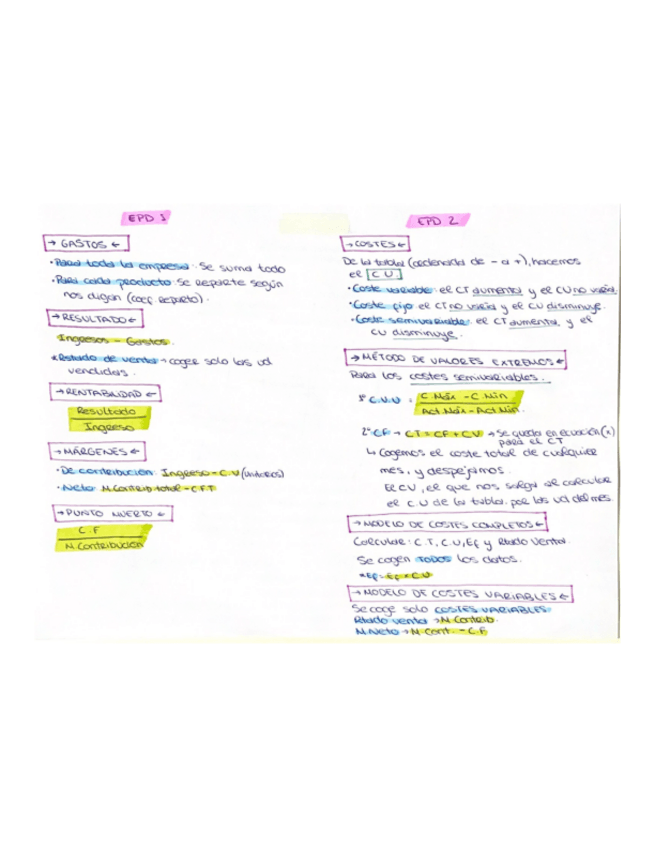 EPD 1
→ GASTOS ←
· Para toda la empresa: Se suma todo
· Para cada producto: Se reparte según
nos digan (coef. Reparto).
→ RESULTADO ←
Ingresos - Gastos.
*Rstado de venta → coger solo las ud
vendidas.
→ RENTABILIDAD ←
Resultado
Ingreso
→ MÁRGENES ←
· De contribución: Ingreso - C.V (unitarios)
· Neto: M.Contrib total - C.F.T
→ PUNTO MUERTO ←
C.F
M.Contribución
EPD 2
→ COSTES ←
De la tabla (ordenada de - a +), hacemos
el C U
· Coste variable: el CT aumenta y el CU no varía.
· Coste fijo: el CT no varía y el CU disminuye.
· Coste semivariable: el CT aumenta, y el
CU disminuye.
→ MÉTODO DE VALORES EXTREMOS ←
Para los costes semivariables.
1º C.V.U = C.Máx - C.Min
Act.Máx - Act.Min.
2º CF → CT = CF + CV → Se queda en ecuación (x)
para el CT
↳ Cogemos el coste total de cualquier
mes, y despejamos.
El CV, el que nos salga al calcular
el C.U de la tabla. por las ud del mes.
→ MODELO DE COSTES COMPLETOS ←
Calcular: C.T, C.U, Ef y Rtado Venta.
Se cogen TODOS los datos.
*Ef = Ef × C U
→ MODELO DE COSTES VARIABLES ←
Se coge solo COSTES VARIABLES
Rtado venta → M.Contrib.
M.Neto → M.Cont. - C.F